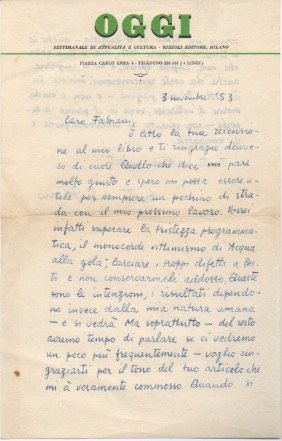 OGGI
SETTIMANALE DI ATTUALITÀ E CULTURA - RIZZOLI EDITORE, MILANO
PIAZZA CARLO ERBA 6 - TELEFONO
3 novembre '53
Caro Fabiani,
ò letto la tua recensio-
ne al mio libro e ti ringrazio davve-
ro di cuore. Quello che dici mi pare
molto giusto e spero mi possa essere u-
tile per compiere un pochino di stra-
da con il mio prossimo lavoro. Vorrei
infatti superare la tristezza programma-
tica, il monocorde vittimismo di "Acqua
alla gola", lasciare i troppi difetti a
e non conservarmeli addosso. Queste
sono le intenzioni, i risultati dipendo-
no invece dalla mia natura umana
— e si vedrà. Ma soprattutto — del resto
avremo tempo di parlare se ci vedremo
un poco più frequentemente — voglio rin-
graziarti per il tono del tuo articolo che
mi à veramente commosso. Quando si